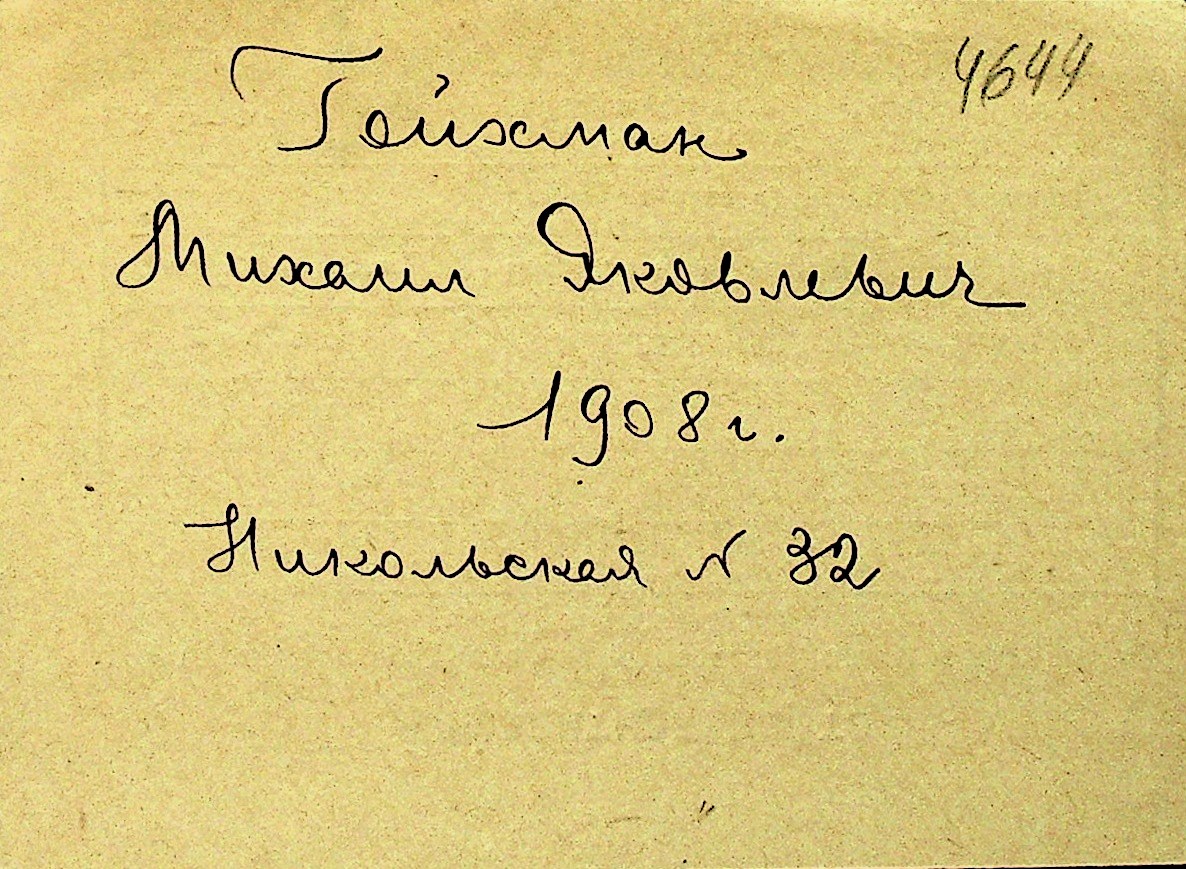 4644
Гойхман
Михаил Яковлевич
1908 г.
Никольская N 32